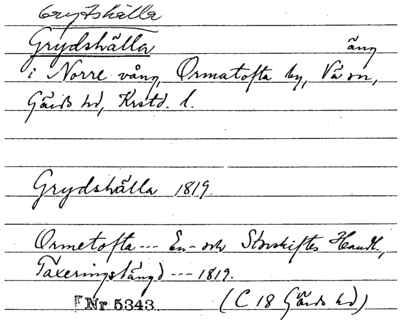 Grydshälla
Grydshälla äng
i Norre vång, Ormatofta by, Vä sn,
Gärds hd, Krstd. l.
Grydshälla 1819.
Ormetofta --- En- och Storskiftes Handl.,
Taxeringslängd --- 1819.
Nr 5343. (C 18 Gärds hd)